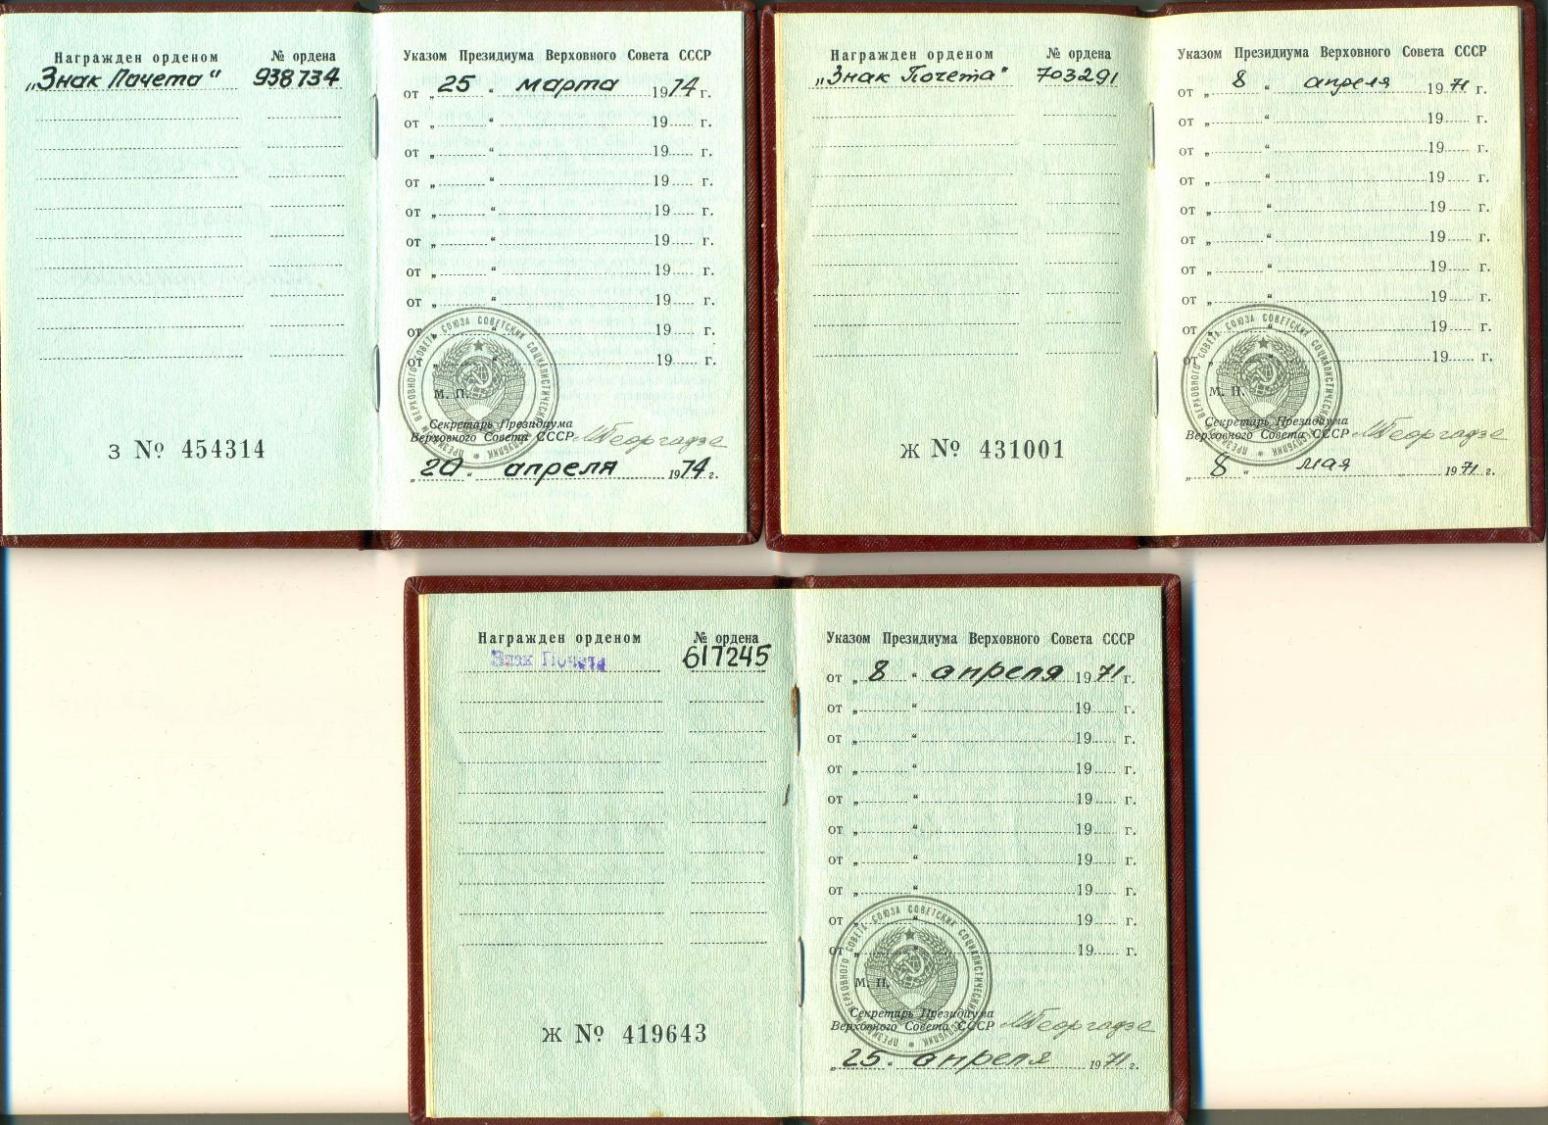 Награжден орденом № ордена
„Знак Почета“ 938734
Указом Президиума Верховного Совета СССР
от „25“ марта 1974 г.
от „ “ 19 г.
от „ “ 19 г.
от „ “ 19 г.
от „ “ 19 г.
от „ “ 19 г.
от „ “ 19 г.
от „ “ 19 г.
от „ “ 19 г.
от „ “ 19 г.
М. П.
Секретарь Президиума
Верховного Совета СССР МГеоргадзе
„20“ апреля 1974 г.
З № 454314
ПРЕЗИДИУМ ВЕРХОВНОГО СОВЕТА СОЮЗА СОВЕТСКИХ СОЦИАЛИСТИЧЕСКИХ РЕСПУБЛИК
Награжден орденом № ордена
„Знак Почета“ 703291
Указом Президиума Верховного Совета СССР
от „8“ апреля 1971 г.
от „ “ 19 г.
от „ “ 19 г.
от „ “ 19 г.
от „ “ 19 г.
от „ “ 19 г.
от „ “ 19 г.
от „ “ 19 г.
от „ “ 19 г.
от „ “ 19 г.
М. П.
Секретарь Президиума
Верховного Совета СССР МГеоргадзе
„8“ мая 1971 г.
Ж № 431001
ПРЕЗИДИУМ ВЕРХОВНОГО СОВЕТА СОЮЗА СОВЕТСКИХ СОЦИАЛИСТИЧЕСКИХ РЕСПУБЛИК
Награжден орденом № ордена
Знак Почета 617245
Указом Президиума Верховного Совета СССР
от „8“ апреля 1971 г.
от „ “ 19 г.
от „ “ 19 г.
от „ “ 19 г.
от „ “ 19 г.
от „ “ 19 г.
от „ “ 19 г.
от „ “ 19 г.
от „ “ 19 г.
от „ “ 19 г.
М. П.
Секретарь Президиума
Верховного Совета СССР МГеоргадзе
„25“ апреля 1971 г.
Ж № 419643
ПРЕЗИДИУМ ВЕРХОВНОГО СОВЕТА СОЮЗА СОВЕТСКИХ СОЦИАЛИСТИЧЕСКИХ РЕСПУБЛИК